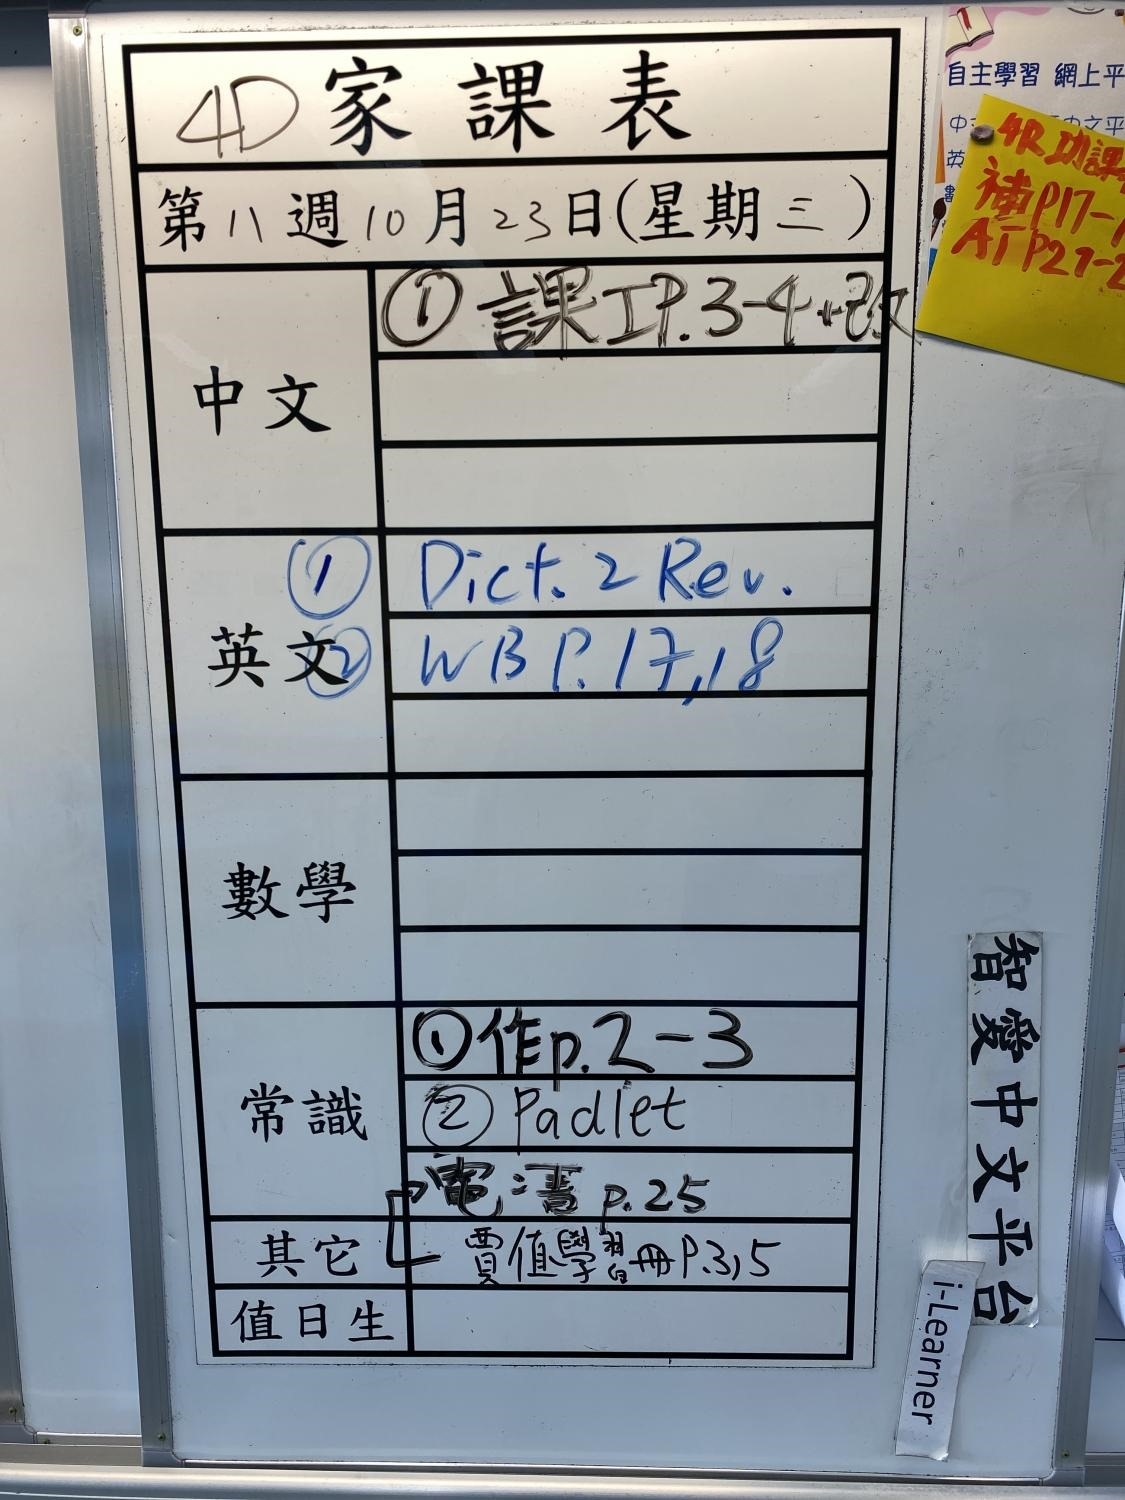 4D 家課表
第八週10月23日(星期三)
中文
① 課工P.3-4+改
英文
① Dict. 2 Rev.
② WB P.17,18
數學
常識
① 作p.2-3
② Padlet
電 p.25
其它
賈值學習冊P.3,5
值日生
自主學習 網上平
英
數
4R功課
補P17-
AT P27-2
智愛中文平台
i-Learner